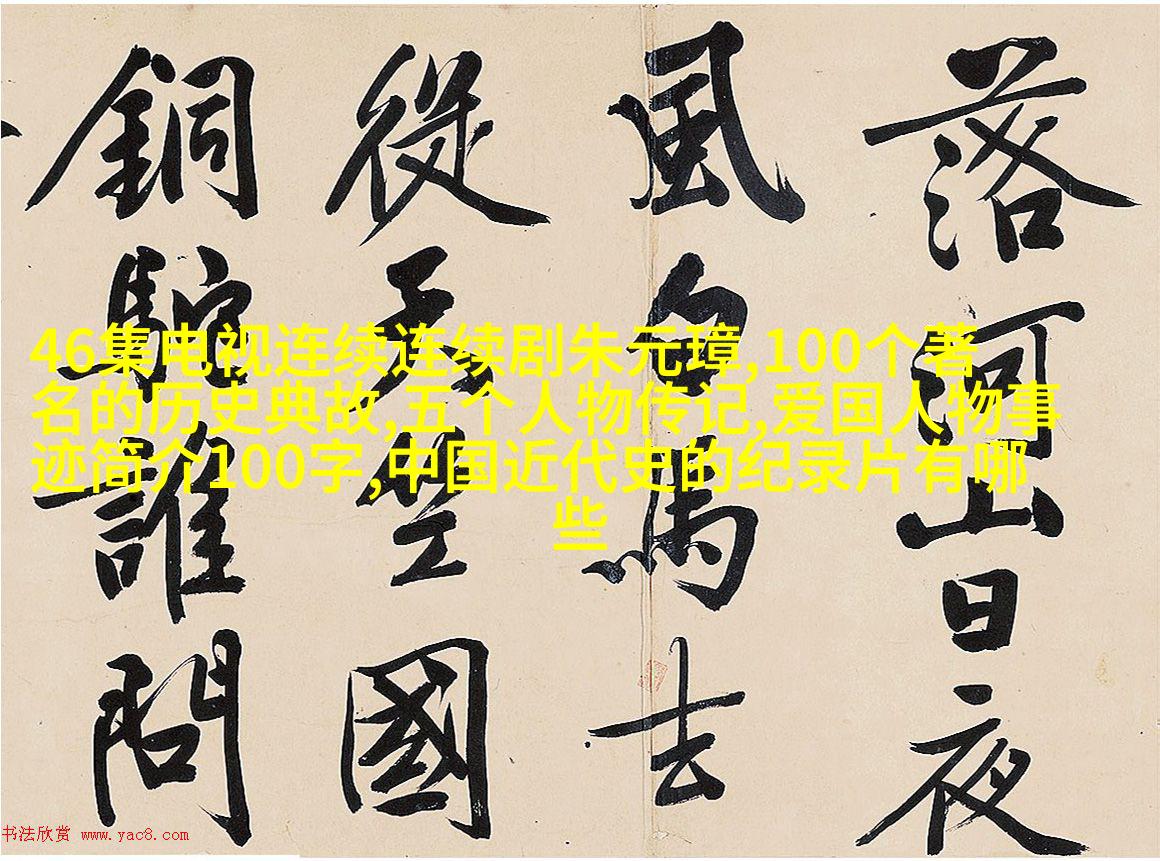 落河山日夜
風白馬去
從天竺國
銅駝誰問
46集电视连续连续剧朱元璋,100个著
名的历史典故,五个人物传记,爱国人物事
迹简介100字,中国近代史的纪录片有哪
些
书法欣赏 www.yac8.com